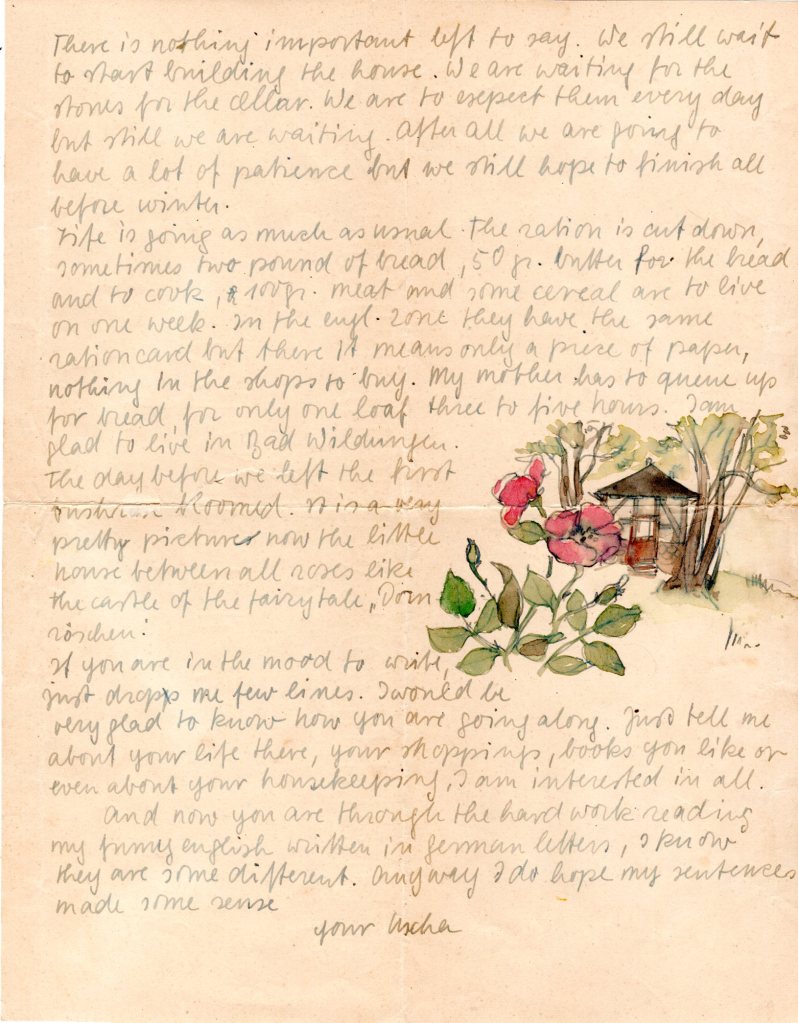 There is nothing important left to say. We still wait
to start building the house. We are waiting for the
stones for the cellar. We are to expect them every day
but still we are waiting. After all we are going to
have a lot of patience but we still hope to finish all
before winter.
Life is going as much as usual. The ration is cut down,
sometimes two pound of bread, 50 gr. butter for the bread
and to cook, 100 gr. meat and some cereal are to live
on one week. In the engl. Zone they have the same
rationcard but there it means only a piece of paper,
nothing in the shops to buy. My mother has to queue up
for bread, for only one loaf three to five hours. I am
glad to live in Bad Wildungen.
The day before we left the first
bloomed. It is a very
pretty picture now the little
house between all roses like
the castle of the fairytale „Dorn
röschen."
If you are in the mood to write,
just drop me few lines. I would be
very glad to know how you are going along. Just tell me
about your life there, your shoppings, books you like or
even about your housekeeping, I am interested in all.
And now you are through the hard work reading
my funny english written in german letters, I know
they are some different. Anyway I do hope my sentences
made some sense
your Uscha